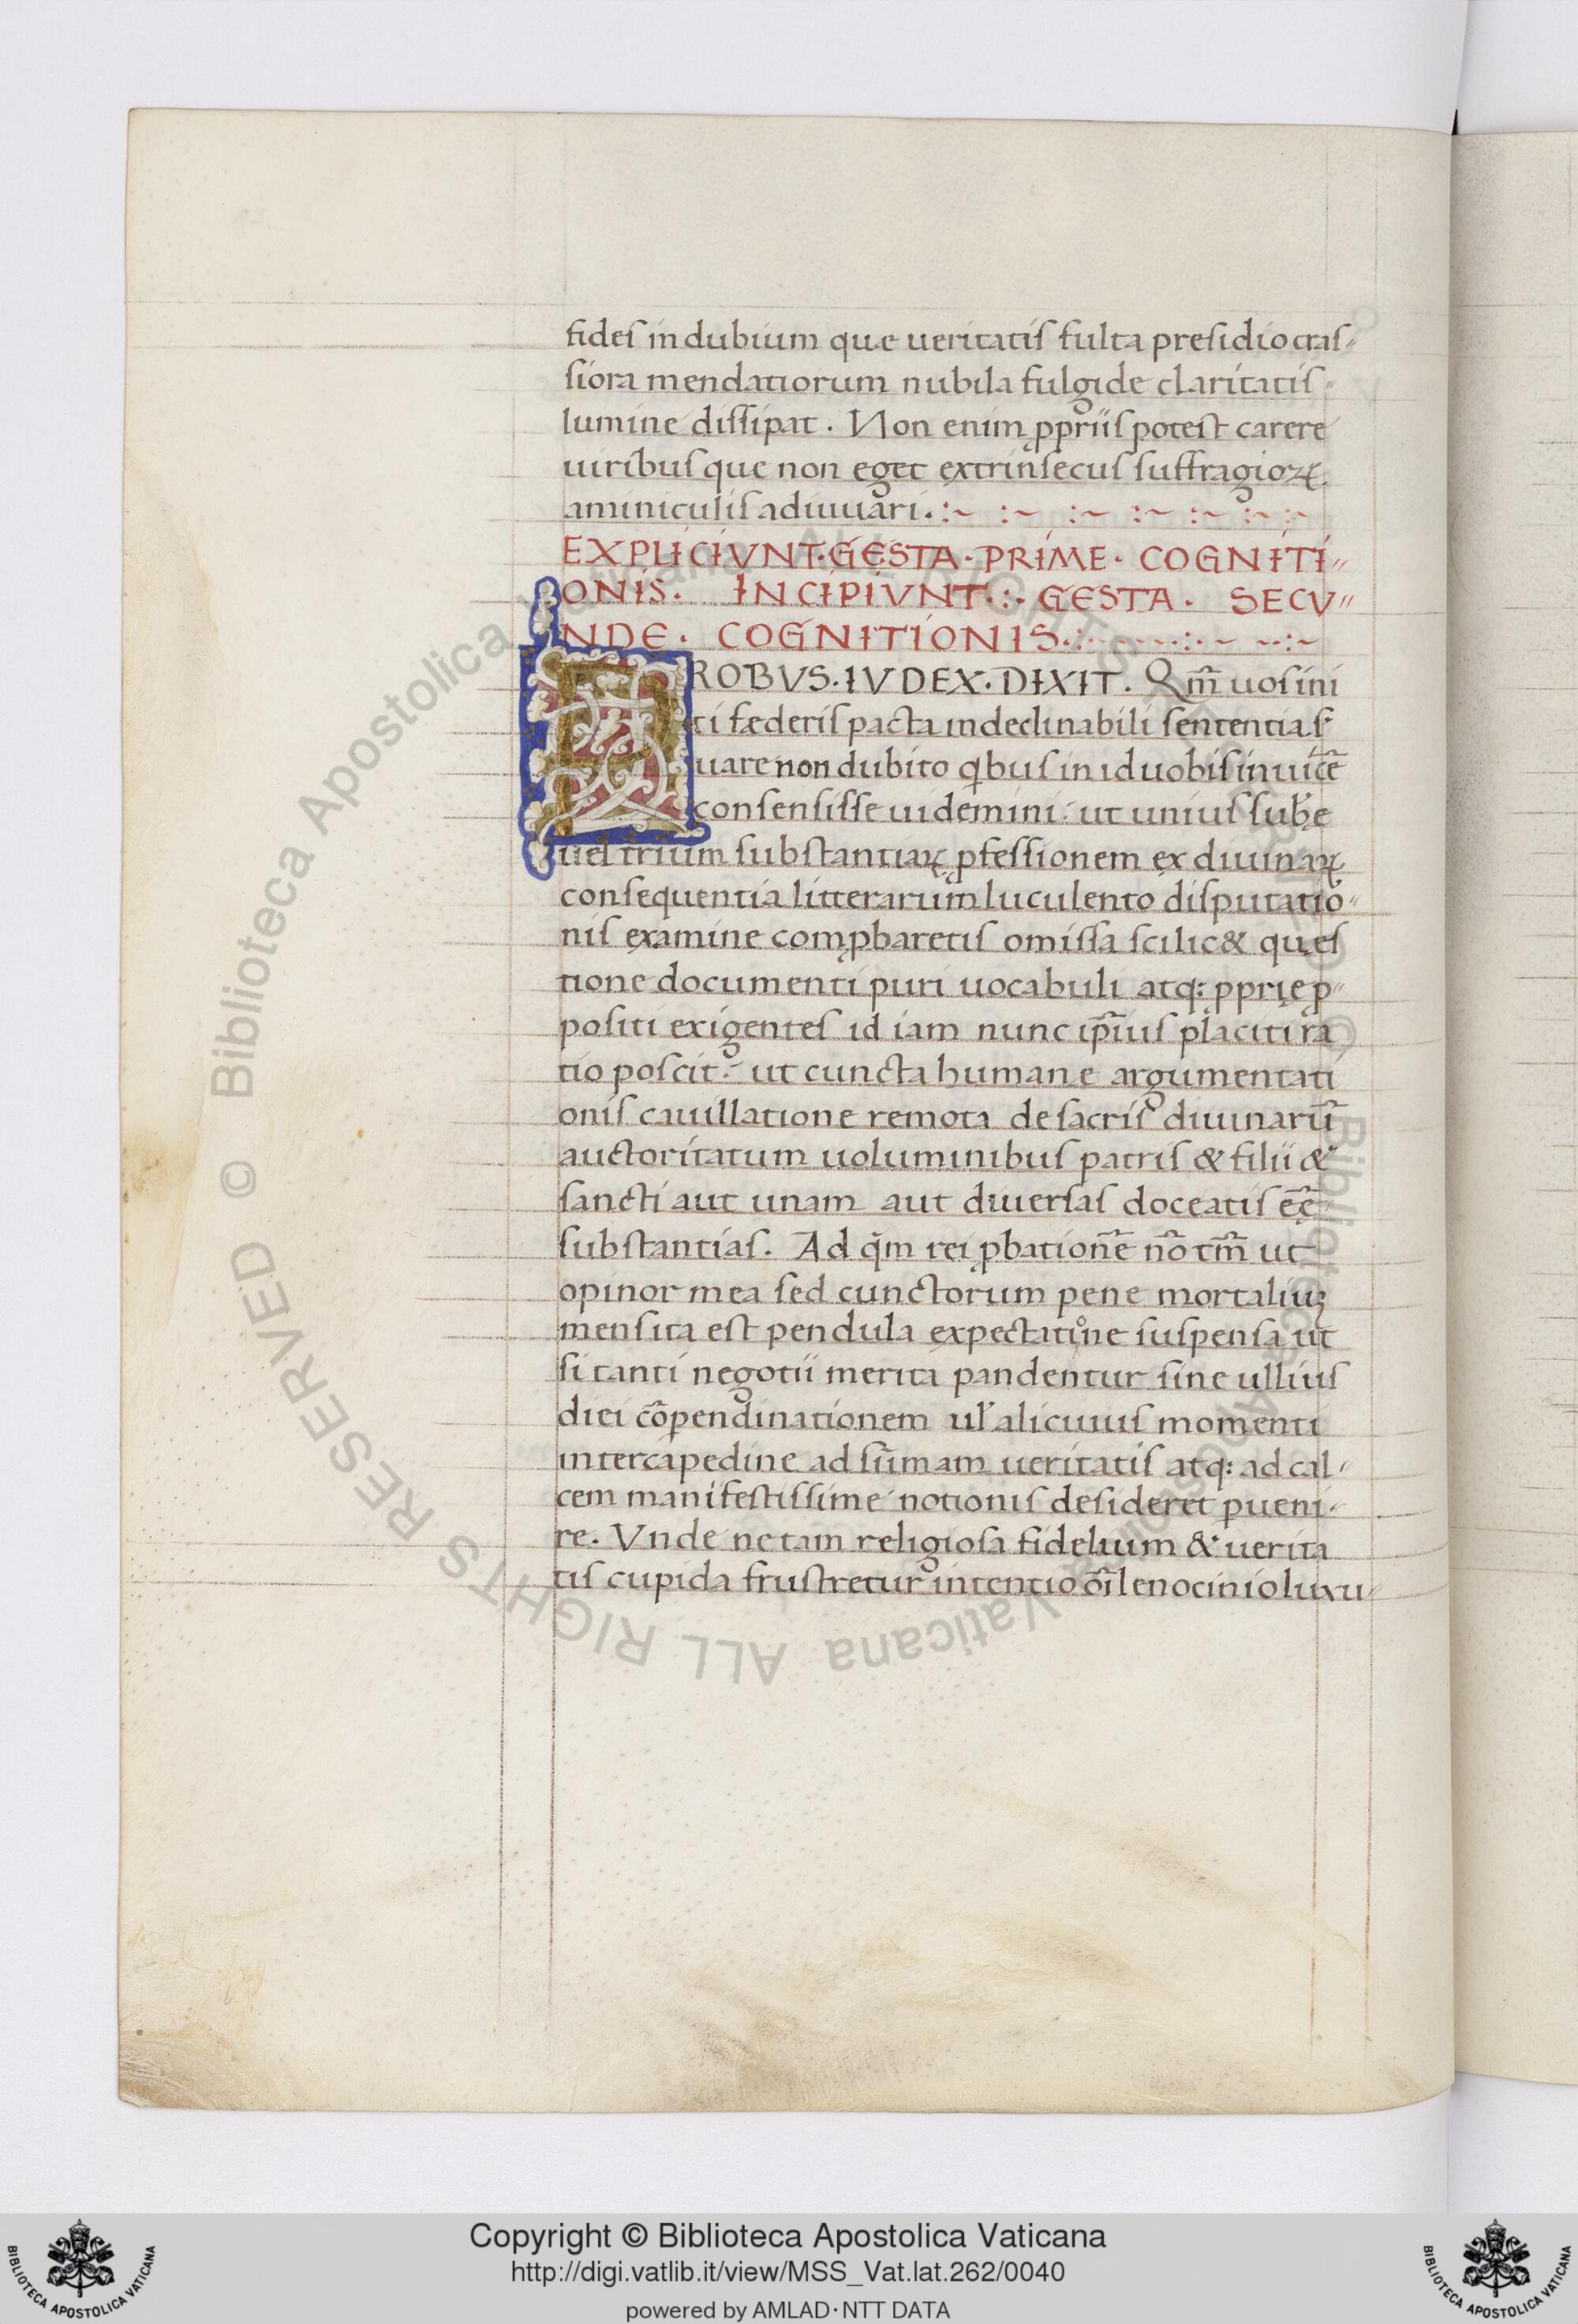 fides in dubium que ueritatis fulta presidio cras-
siora mendatiorum nubila fulgide claritatis
lumine dissipat. Non enim ꝓpriis potest carere
uiribus que non eget extrinsecus suffragioꝝ
aminiculis adiuuari. :~ :~ :~ :~ :~ :~ :~
EXPLICIVNT·GESTA·PRIME· COGNITI-
ONIS. INCIPIVNT.:. GESTA. SECV-
NDE. COGNITIONIS.:
PROBVS·IVDEX·DIXIT. Qm̄ uos ini
ti fæderis pacta indeclinabili sententia
uare non dubito qbus in id uobis inuicē
consensisse uidemini: ut unius sube
uel trium substantiaꝝ ꝓfessionem ex diuinaꝝ
consequentia litterarum luculento disputatio-
nis examine comꝓbaretis omissa scilic& ques
tione documenti puri uocabuli atq: ꝓprię ꝓ-
positi exigentes id iam nunc ip̄ius placiti ra
tio poscit: ut cuncta humane argumentati
onis cauillatione remota de sacris diuinarū
auctoritatum uoluminibus patris & filii &
sancti aut unam aut diuersas doceatis eē
substantias. Ad q̄m rei ꝓbationē nō tm̄ ut
opinor mea sed cunctorum pene mortaliuꝫ
mens ita est pendula expectatione suspensa ut
si tanti negotii merita pandentur sine ullius
diei cōpendinationem ul' alicuius momenti
intercapedine ad sūmam ueritatis atq: ad cal-
cem manifestissime notionis desideret ꝑueni-
re. Vnde ne tam religiosa fidelium & uerita
tis cupida frustretur intentio oī lenocinio luxu-
© Biblioteca Apostolica Vaticana ALL RIGHTS RESERVED
Copyright © Biblioteca Apostolica Vaticana
http://digi.vatlib.it/view/MSS_Vat.lat.262/0040
powered by AMLAD·NTT DATA
BIBLIOTECA APOSTOLICA VATICANA
BIBLIOTECA APOSTOLICA VATICANA